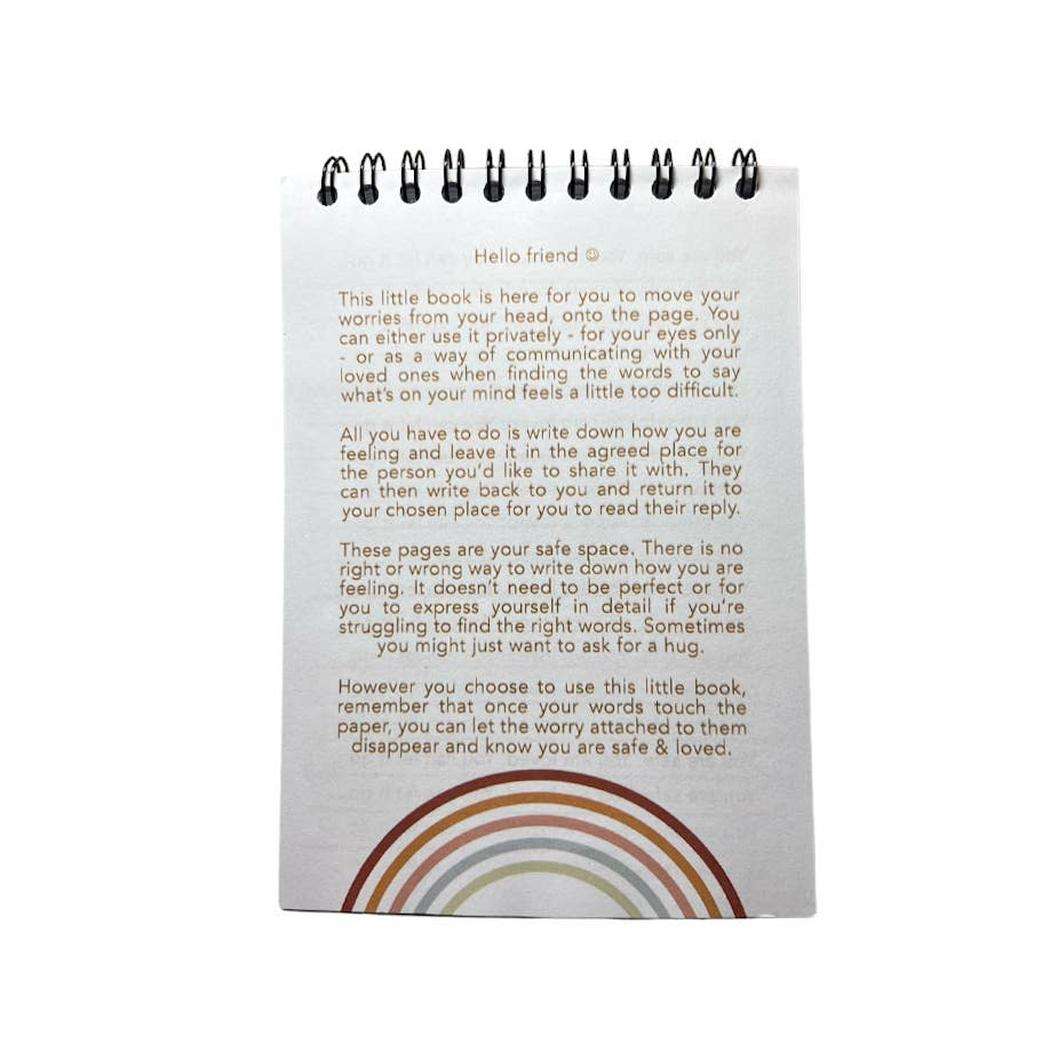 Hello friend ☺
This little book is here for you to move your
worries from your head, onto the page. You
can either use it privately - for your eyes only
- or as a way of communicating with your
loved ones when finding the words to say
what's on your mind feels a little too difficult.
All you have to do is write down how you are
feeling and leave it in the agreed place for
the person you'd like to share it with. They
can then write back to you and return it to
your chosen place for you to read their reply.
These pages are your safe space. There is no
right or wrong way to write down how you are
feeling. It doesn't need to be perfect or for
you to express yourself in detail if you're
struggling to find the right words. Sometimes
you might just want to ask for a hug.
However you choose to use this little book,
remember that once your words touch the
paper, you can let the worry attached to them
disappear and know you are safe & loved.